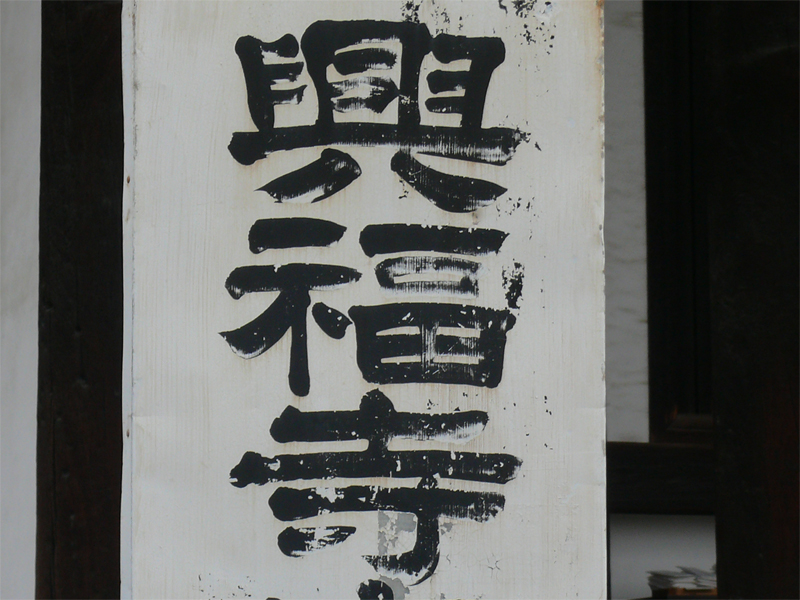 興福寺